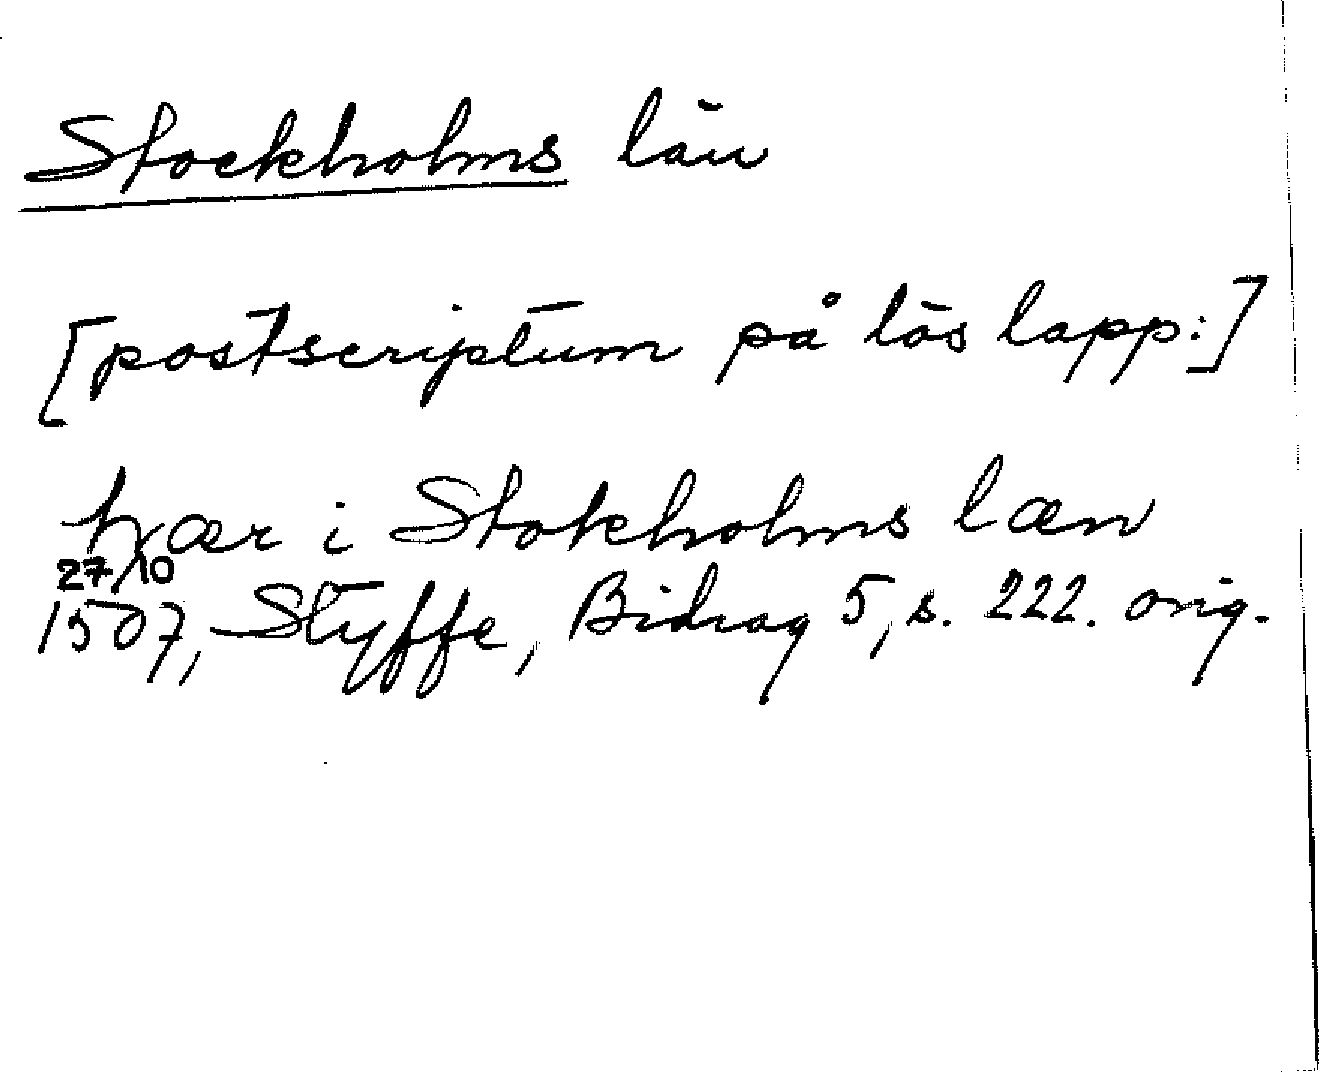 Stockholms län
[postscriptum på lös lapp:]
hær i Stokholms læn
27/10
1507, Styffe, Bidrag 5, s. 222. orig.